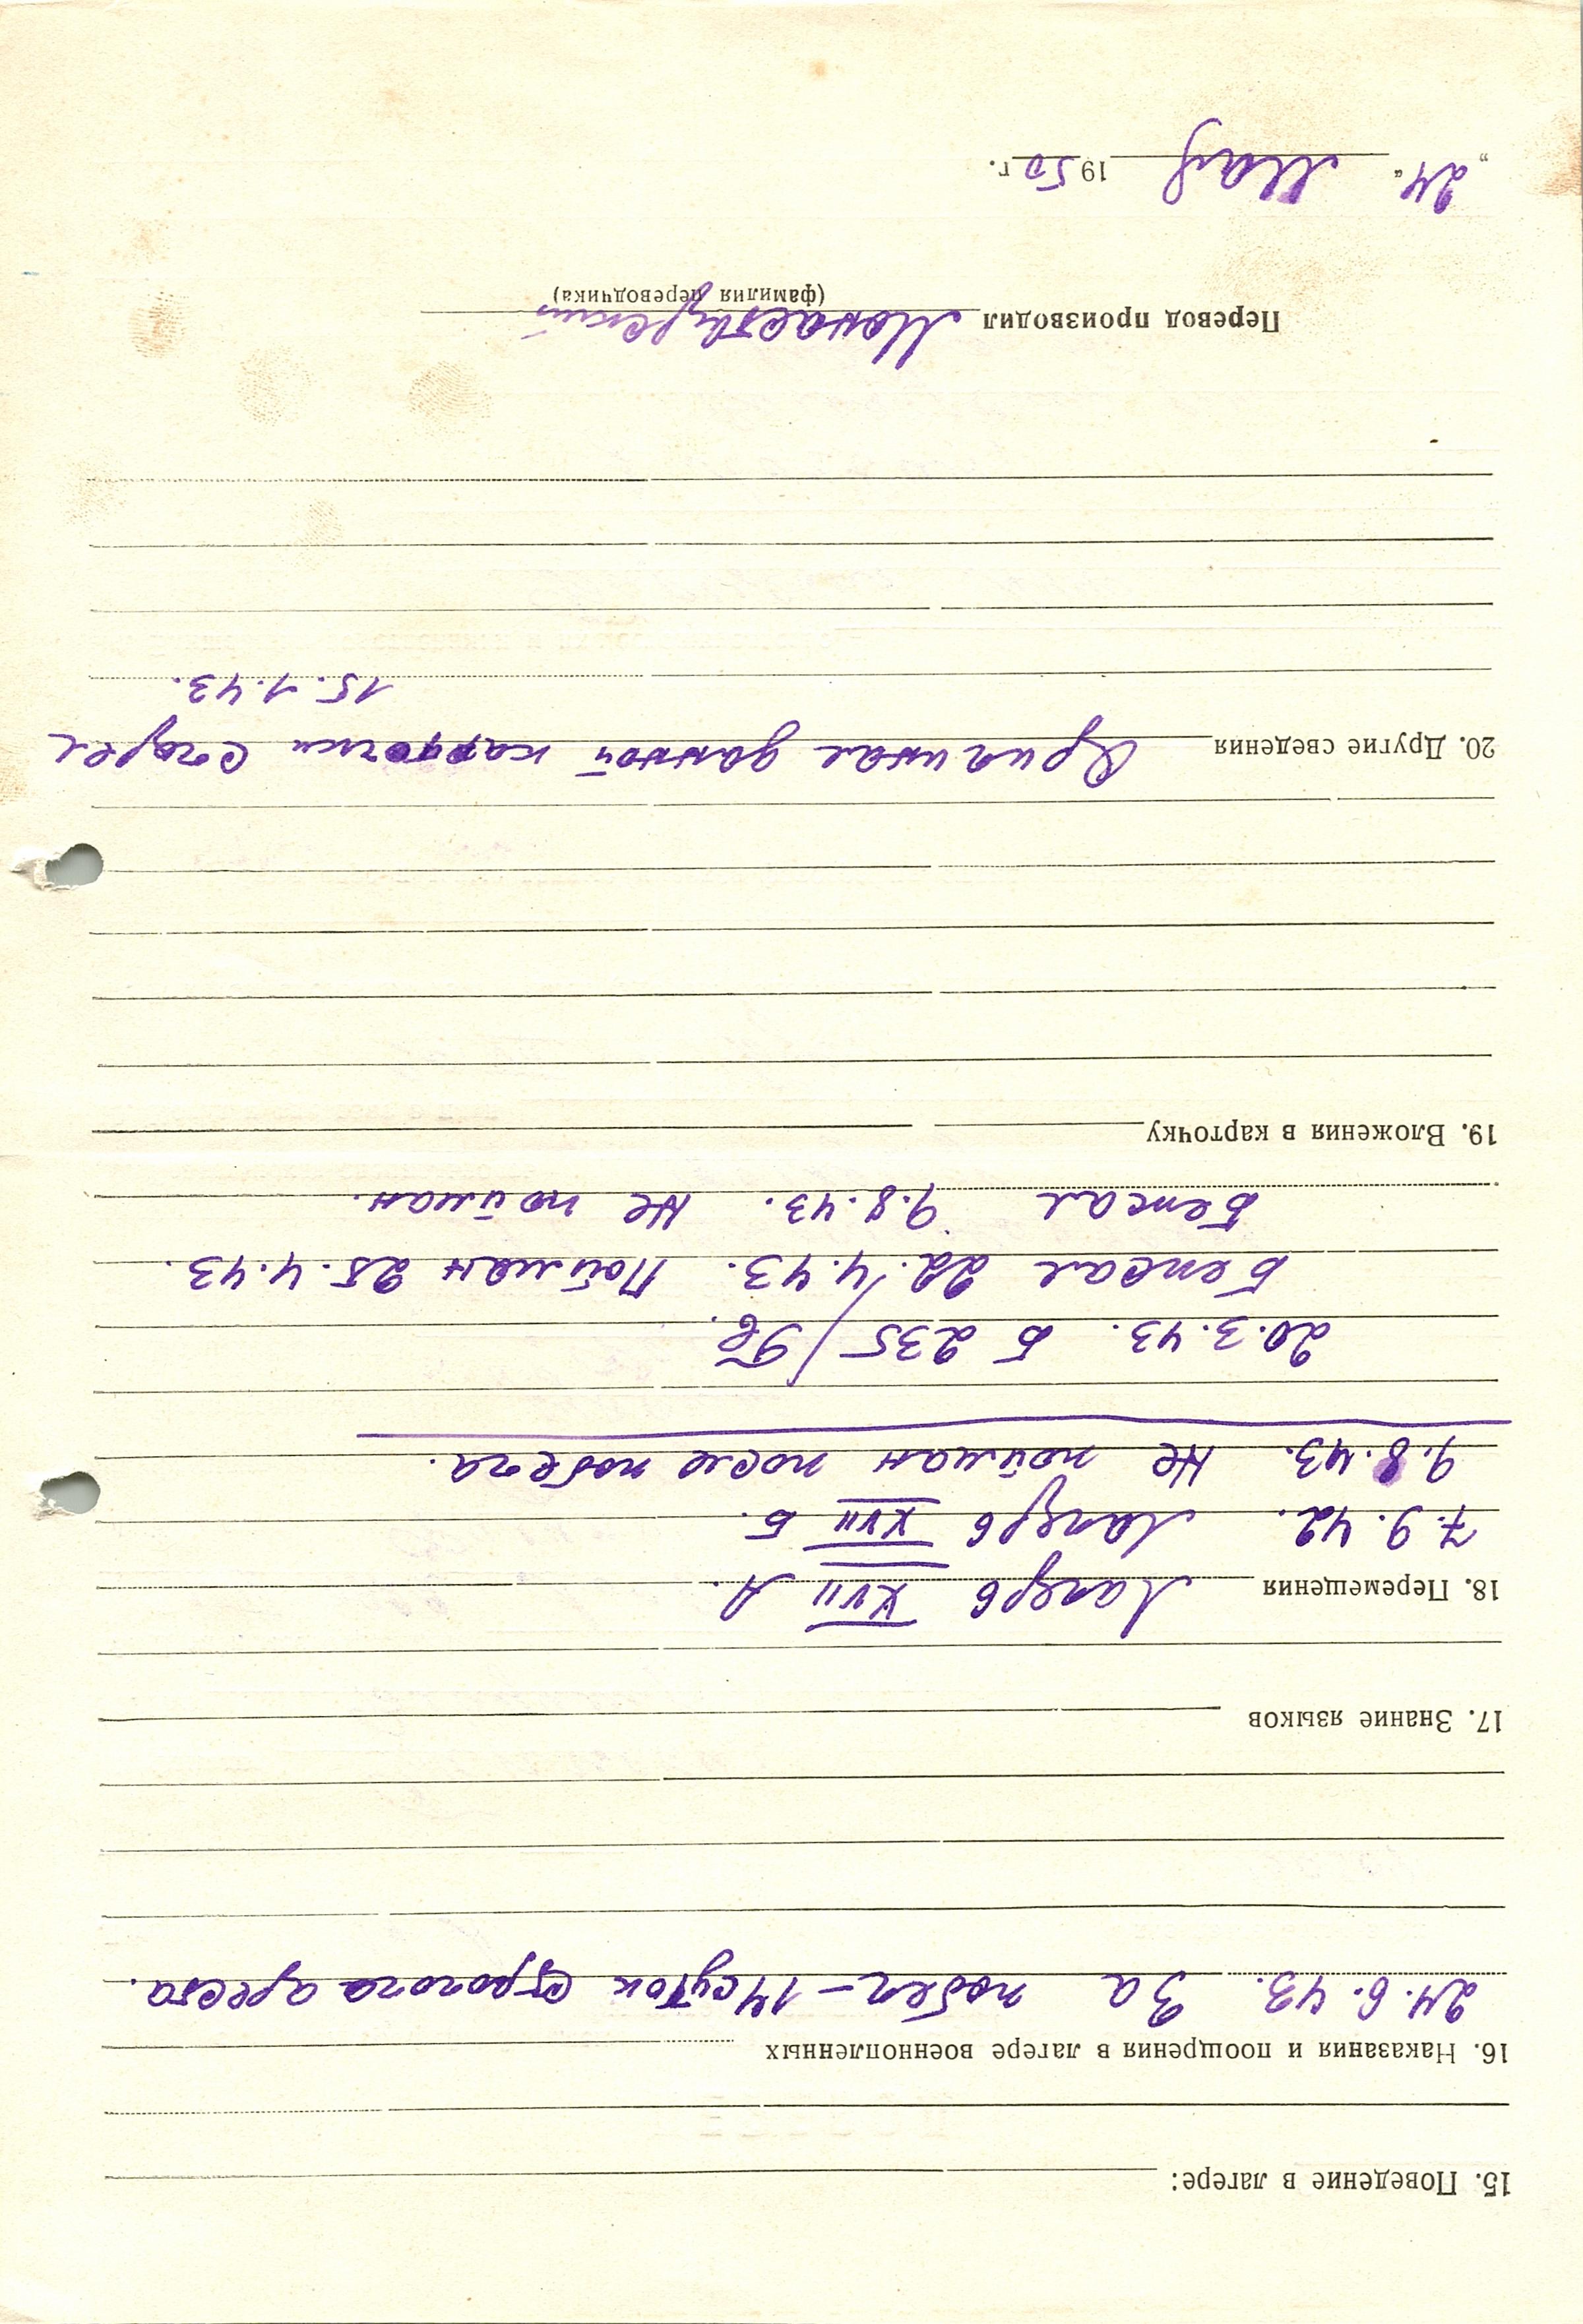 15. Поведение в лагере:
16. Наказания и поощрения в лагере военнопленных
24.6.43. За побег – 14 суток строгого ареста.
17. Знание языков
18. Перемещения Лагерь XVII А.
7.9.42. Лагерь XVII Б.
9.8.43. Не пойман после побега.
20.3.43. Б 235/Гв.
Бежал 22.4.43. Пойман 25.4.43.
Бежал 9.8.43. Не пойман.
19. Вложения в карточку
20. Другие сведения Оригинал данной карточки сгорел
15.1.43.
Перевод производил Монастырский
(фамилия переводчика)
„24“ Мая 1950 г.